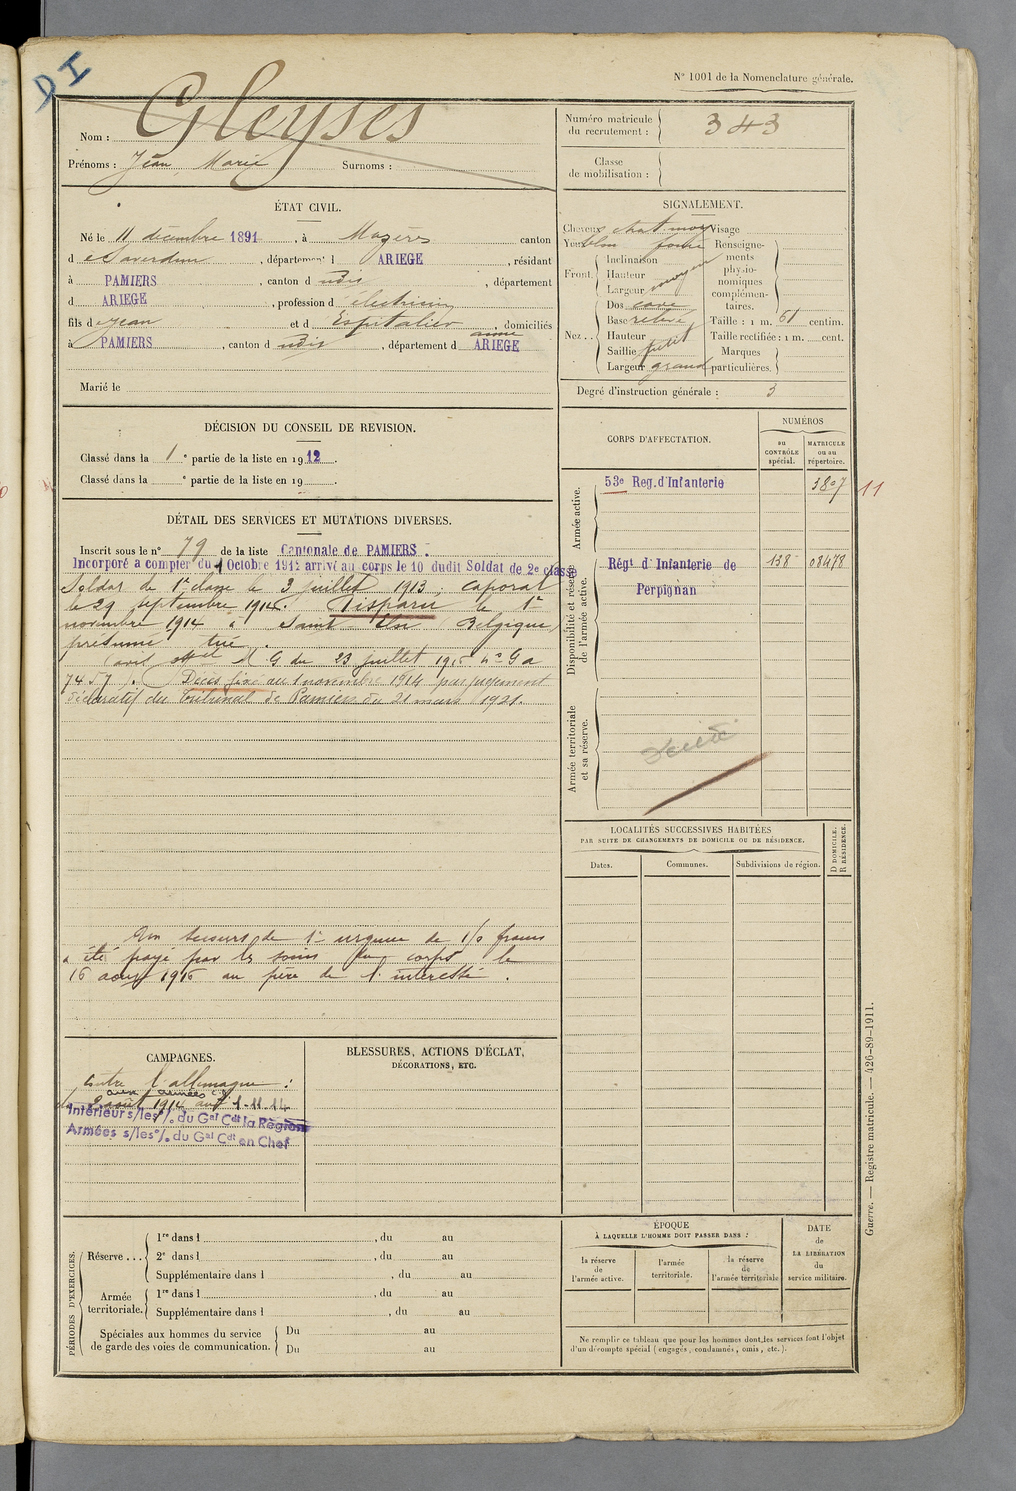 DI
N° 1001 de la Nomenclature générale.
Nom : Gleyses
Prénoms : Jean, Marie Surnoms :
Numéro matricule du recrutement : 343
Classe de mobilisation :
ÉTAT CIVIL.
Né le 11 décembre 1891, à Mazères canton
de Saverdun, département d ARIEGE, résidant
à PAMIERS, canton d udis, département
d ARIEGE, profession d électricien
fils de Jean et d Espitalier anne, domiciliés
à PAMIERS, canton d udis, département d ARIEGE
Marié le
SIGNALEMENT.
Cheveux chat. moy Visage
Yeux bleu foncé Renseignements physionomiques complémentaires.
Front. Inclinaison
Hauteur
Largeur moyen
Nez.. Dos cave
Base relevé
Hauteur petit
Saillie
Largeur grand
Taille : 1 m. 61 centim.
Taille rectifiée : 1 m. cent.
Marques particulières.
Degré d'instruction générale : 3
DÉCISION DU CONSEIL DE REVISION.
Classé dans la 1e partie de la liste en 1912.
Classé dans la e partie de la liste en 19 .
CORPS D'AFFECTATION.
NUMÉROS
au CONTRÔLE spécial.
MATRICULE ou au répertoire.
Armée active.
53e Reg. d'Infanterie 3807 11
Disponibilité et réserve de l'armée active.
Régt d'Infanterie de Perpignan 138 08478
Armée territoriale et sa réserve.
DÉTAIL DES SERVICES ET MUTATIONS DIVERSES.
Inscrit sous le n° 79 de la liste Cantonale de PAMIERS.
Incorporé à compter du 1 Octobre 1912 arrivé au corps le 10 dudit Soldat de 2e classe
Soldat de 1re classe le 3 juillet 1913, caporal
le 29 septembre 1914. Disparu le 1er
novembre 1914 à Saint Eloi Belgique,
présumé tué.
(avis offel M G du 23 juillet 1915 n° Ga
7457). Décès fixé au 1 novembre 1914 par jugement
déclaratif du Tribunal de Pamiers du 21 mars 1921.
Un secours de 1re urgence de 150 francs
a été payé par les soins du corps le
16 août 1915 au père de l'intéressé.
LOCALITÉS SUCCESSIVES HABITÉES
PAR SUITE DE CHANGEMENTS DE DOMICILE OU DE RÉSIDENCE.
Dates.
Communes.
Subdivisions de région.
D DOMICILE.
R RÉSIDENCE.
CAMPAGNES.
Contre l'allemagne :
aux armées
du 2 août 1914 au 1-11-14
Intérieur s/les°/. du Gal Cdt la Région
Armées s/les°/. du Gal Cdt en Chef
BLESSURES, ACTIONS D'ÉCLAT,
DÉCORATIONS, ETC.
PÉRIODES D'EXERCICES.
Réserve ...
1re dans l , du au
2e dans l , du au
Supplémentaire dans l , du au
Armée territoriale.
1re dans l , du au
Supplémentaire dans l , du au
Spéciales aux hommes du service
de garde des voies de communication.
Du au
Du au
ÉPOQUE
À LAQUELLE L'HOMME DOIT PASSER DANS :
la réserve de l'armée active.
l'armée territoriale.
la réserve de l'armée territoriale
DATE de LA LIBÉRATION du service militaire.
Ne remplir ce tableau que pour les hommes dont les services font l'objet
d'un décompte spécial (engagés, condamnés, omis, etc.).
Guerre. — Registre matricule. — 426-89-1911.